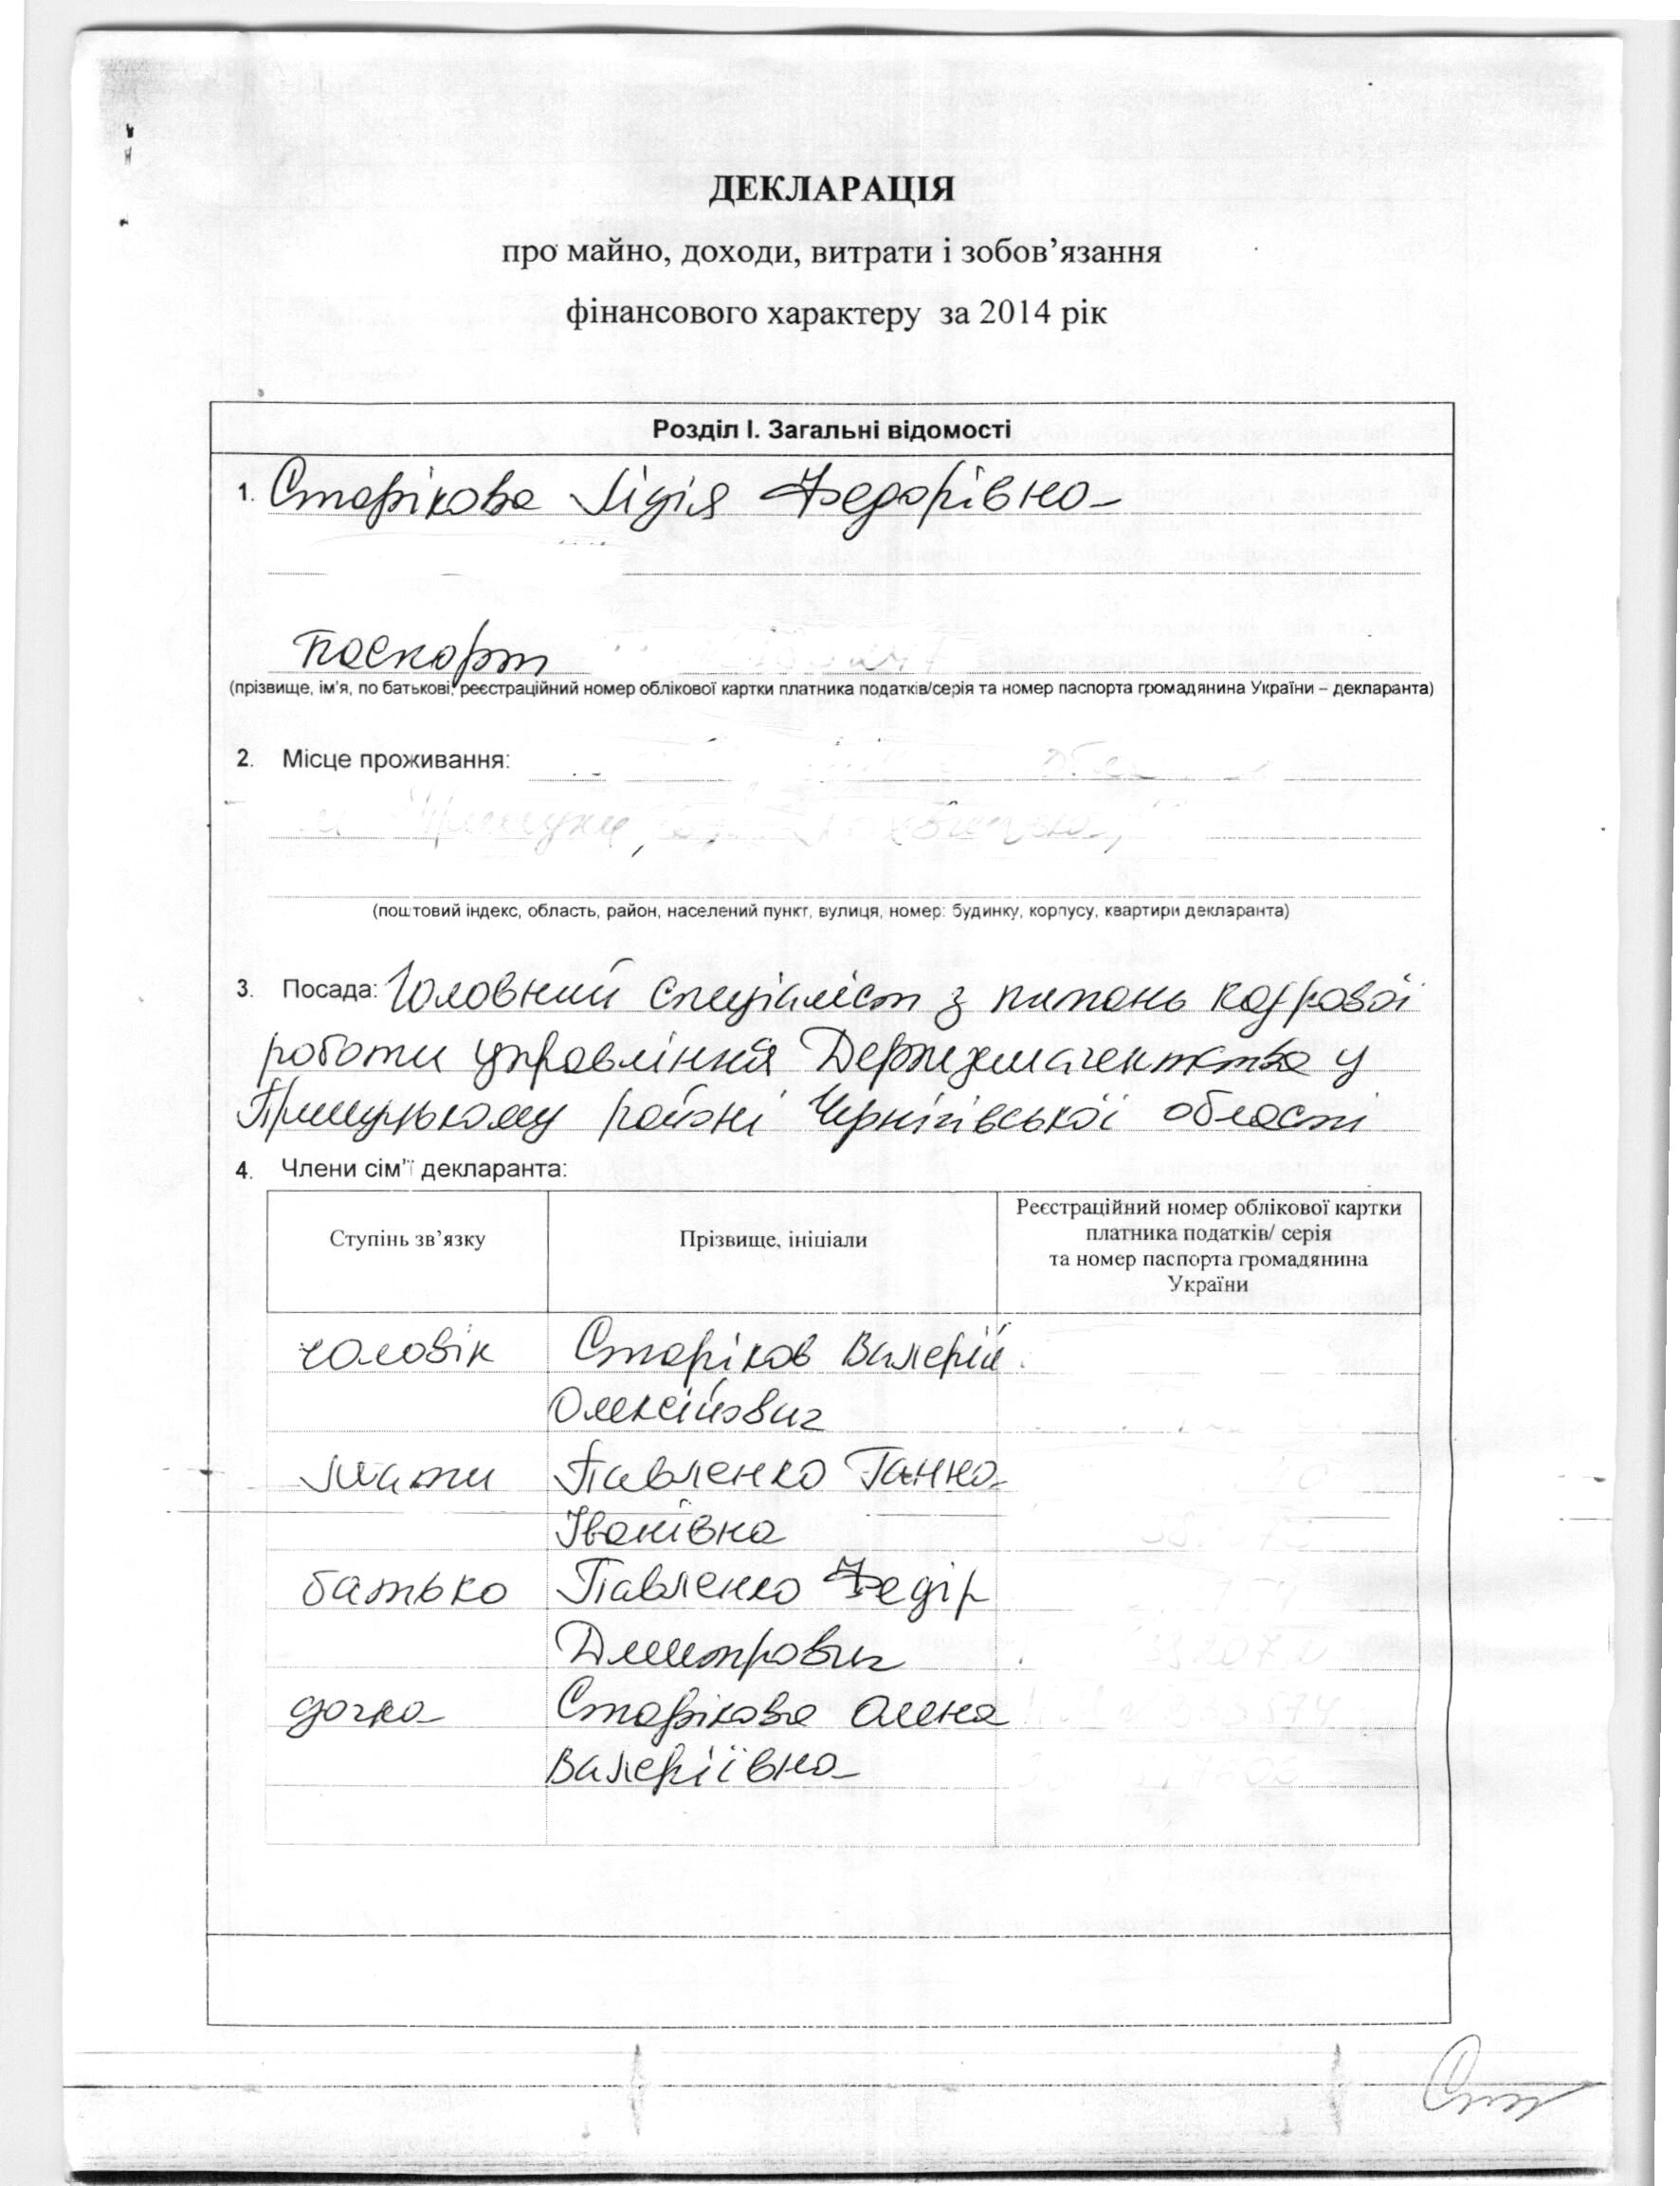 ДЕКЛАРАЦІЯ
про майно, доходи, витрати і зобов’язання
фінансового характеру за 2014 рік
Розділ I. Загальні відомості
1. Старікова Лідія Федорівна
Паспорт
(прізвище, ім’я, по батькові, реєстраційний номер облікової картки платника податків/серія та номер паспорта громадянина України – декларанта)
2. Місце проживання:
(поштовий індекс, область, район, населений пункт, вулиця, номер: будинку, корпусу, квартири декларанта)
3. Посада: Головний спеціаліст з питань кадрової
роботи управління Держземагентства у
Прилуцькому районі Чернігівської області
4. Члени сім’ї декларанта:
Ступінь зв’язку Прізвище, ініціали Реєстраційний номер облікової картки
платника податків/ серія
та номер паспорта громадянина
України
чоловік Старіков Валерій
Олексійович
мати Павленко Ганна
Іванівна
батько Павленко Федір
Дмитрович
дочка Старікова Олена
Валеріївна